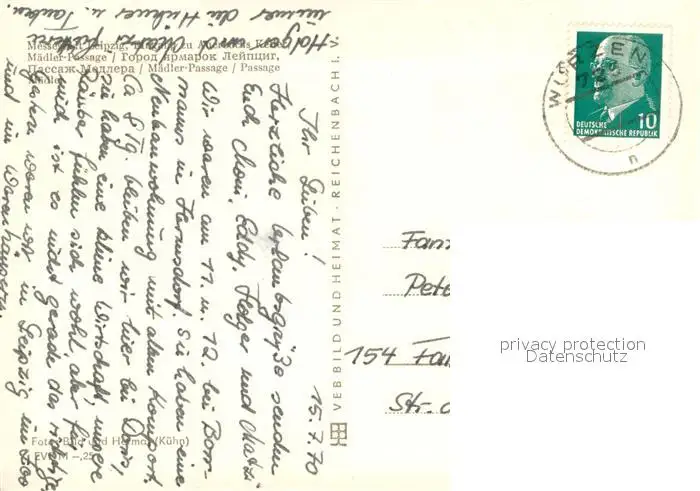 Messestadt Leipzig, Eingang zu Auerbachs Keller
Mädler-Passage / Город ярмарок Лейпциг,
Пассаж Медлера / Mädler-Passage / Passage
Mädler
15.7.70
Ihr Lieben!
Herzliche Urlaubsgrüße senden
Euch Moni, Eddy, Holger und Matzi
Wir waren am 11. u. 12. bei Bor-
manns in Hermsdorf. Sie haben eine
Neubauwohnung mit allem Komfort.
Ca 8 Tg. bleiben wir hier bei Doris,
sie haben eine kleine Wirtschaft, unsere
Räuber fühlen sich wohl, aber für
mich ist es nicht gerade das richtige
Gestern waren wir in Leipzig im Zoo
und in Warenhäusern.
Holger und Matzi füttern
immer die Hühner u. Tauben.
Foto: Bild und Heimat (Kühn)
EVP M -,25
VEB BILD UND HEIMAT · REICHENBACH I. V.
WURZEN
n
10
DEUTSCHE
DEMOKRATISCHE REPUBLIK
Fam
Pete
154 Fal
Str. d
privacy protection
Datenschutz